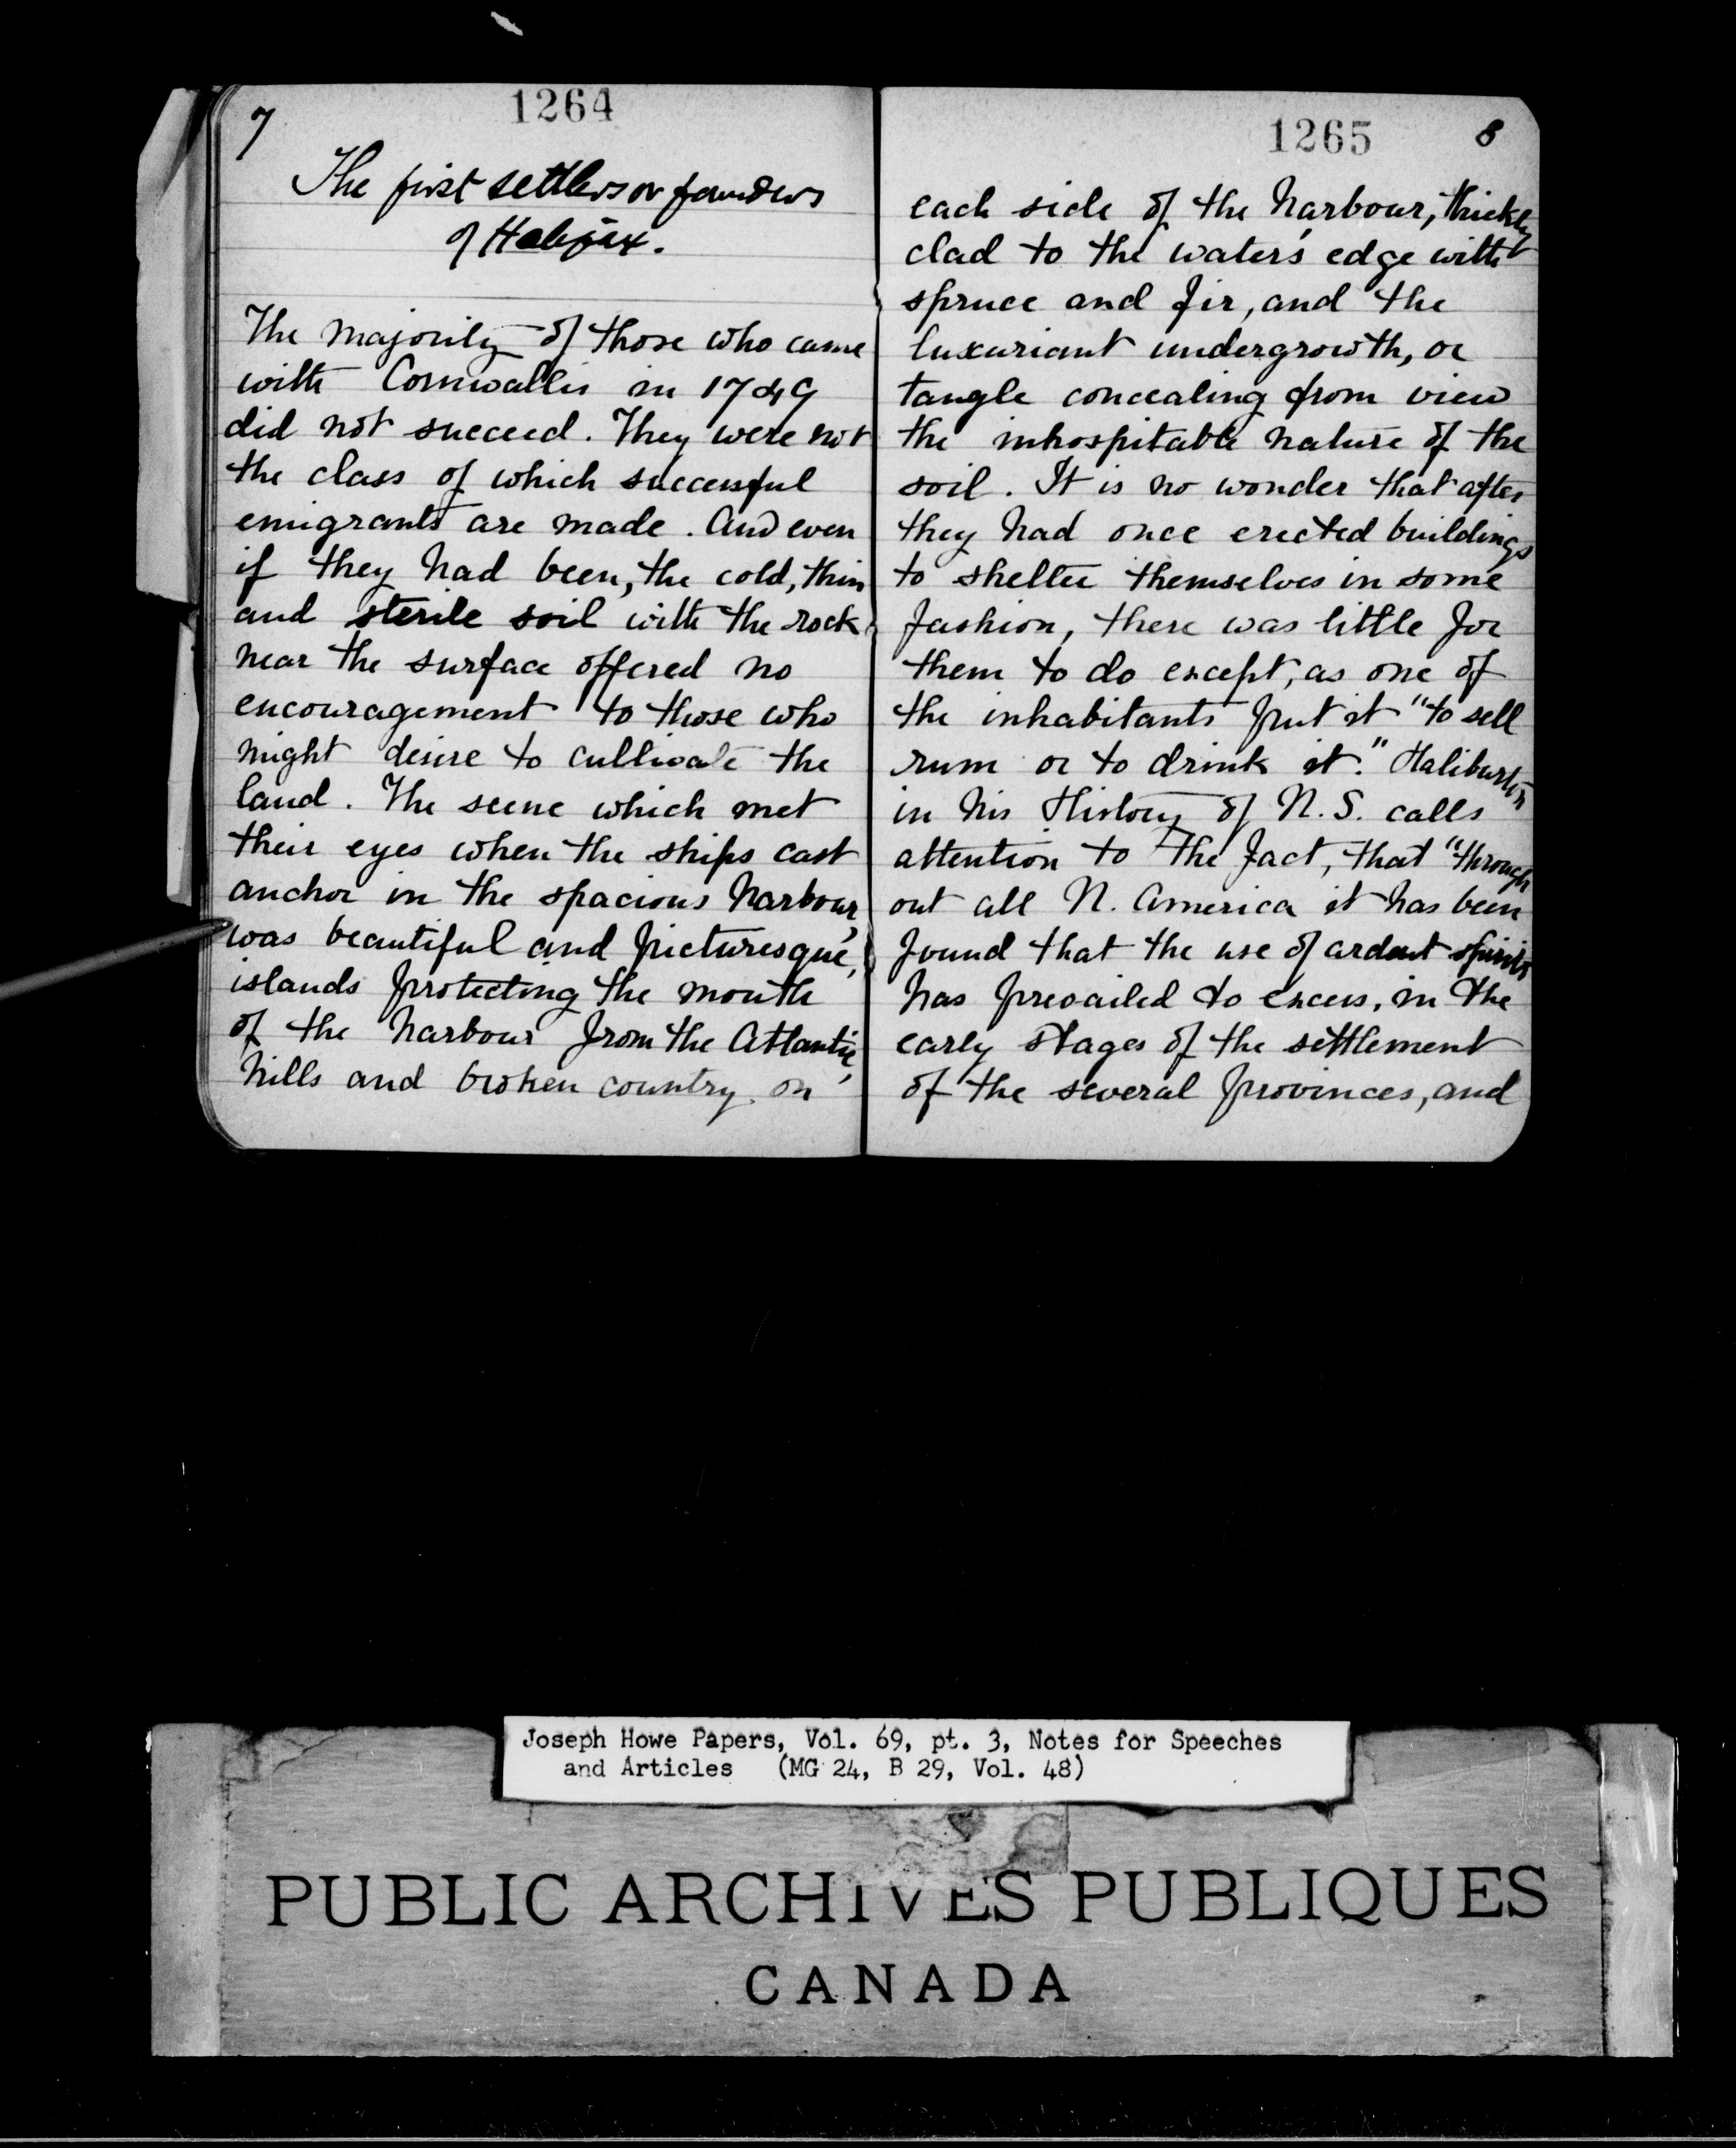 7
1264
The first settlers or founders
of Halifax.
The majority of those who came
with Cornwallis in 1749
did not succeed. They were not
the class of which successful
emigrants are made. And even
if they had been, the cold, thin
and sterile soil with the rock
near the surface offered no
encouragement to those who
might desire to cultivate the
land. The scene which met
their eyes when the ships cast
anchor in the spacious harbour,
was beautiful and picturesque,
islands protecting the mouth
of the harbour from the Atlantic,
hills and broken country on
1265
8
each side of the harbour, thickly
clad to the water's edge with
spruce and fir, and the
luxuriant undergrowth, or
tangle concealing from view
the inhospitable nature of the
soil. It is no wonder that after
they had once erected buildings
to shelter themselves in some
fashion, there was little for
them to do except, as one of
the inhabitants put it "to sell
rum or to drink it." Haliburton
in his History of N.S. calls
attention to the fact, that "through
out all N. America it has been
found that the use of ardent spirits
has prevailed to excess, in the
early stages of the settlement
of the several provinces, and
Joseph Howe Papers, Vol. 69, pt. 3, Notes for Speeches
and Articles (MG 24, B 29, Vol. 48)
PUBLIC ARCHIVES PUBLIQUES
CANADA